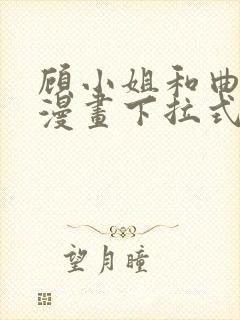 顾小姐和曲
漫畫下拉式
望月瞳